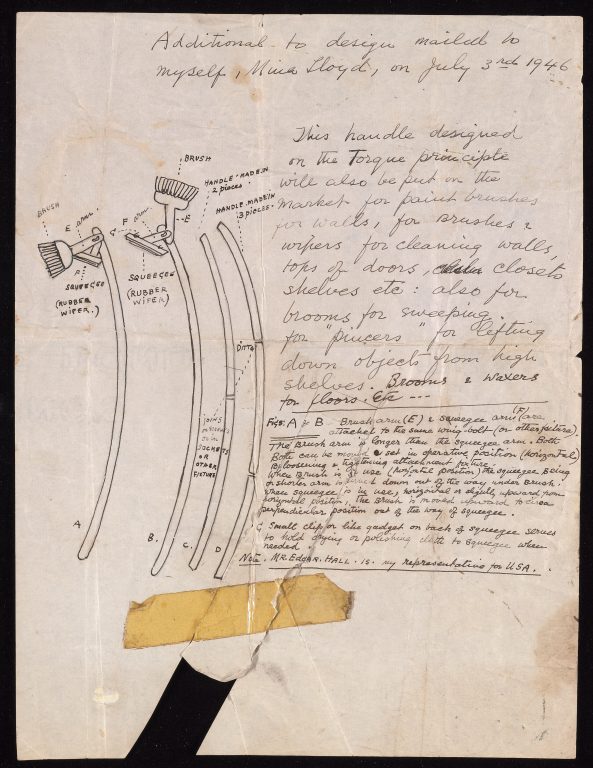 Additional to design mailed to
myself, Mina Lloyd, on July 3rd 1946
This handle designed
on the Torque principle
will also be put on the
market for paint brushes
for walls, for Brushes &
wipers for cleaning walls,
tops of doors, closets
shelves etc: also for
brooms for sweeping.
for "pincers" for lifting
down objects from high
shelves. Brooms & Waxers
for floors. Etc ---
BRUSH
HANDLE MADE IN
2 pieces.
HANDLE. MADE IN
3 PIECES.
BRUSH
E arm
G
F arm
E
F
SQUEEGEE
(RUBBER
WIPER.)
SQUEEGEE
(RUBBER
WIPER)
DITTO
JOINS
SOCKETS
OR
OTHER
FIXTURE.
A
B.
C.
D
Figs: A & B Brush arm (E) & squeegee arm (F) are
attached to the same wing-bolt (or other fixture).
The Brush arm is longer than the squeegee arm. Both
Both can be moved & set in operative position (horizontal)
By loosening & tightening attachment fixture.
When Brush is in use (horizontal position) the squeegee being
on shorter arm is down out of the way under Brush.
When squeegee is in use, horizontal or slightly upward from
horizontal position, the Brush is moved upward to
perpendicular position out of the way of squeegee.
G Small clip or like gadget on back of squeegee serves
to hold drying or polishing cloth to squeegee when
needed.
Note. MR. EDGAR. HALL. IS. my representative for USA.